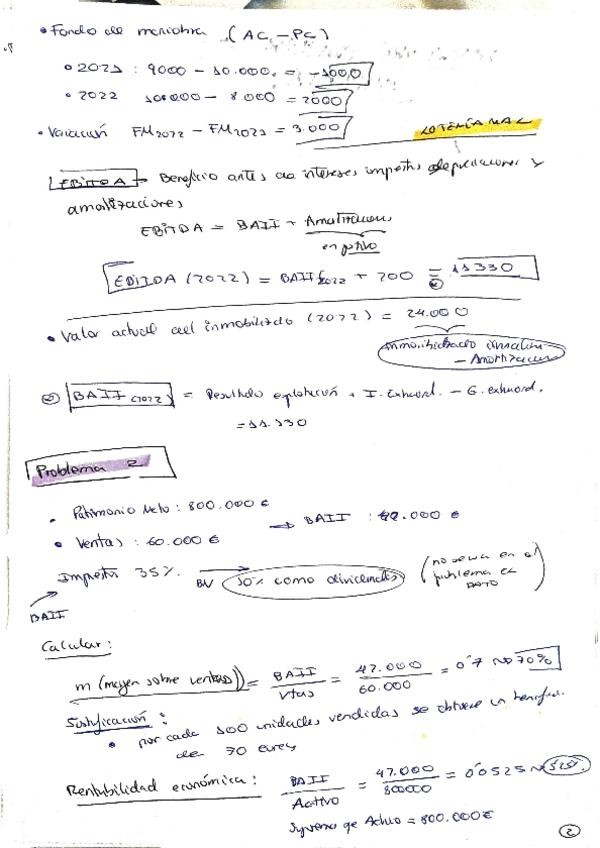 • Fondo de maniobra (AC - PC)
• 2021 : 9000 - 10.000. = -1000
• 2022 10.000 - 8.000 = 2000
• Variación FM2022 - FM2021 = 3.000
EBITDA → Beneficio antes de intereses impuestos depreciaciones y
amortizaciones
EBITDA = BAII + Amortizaciones
EBITDA (2022) = BAII 2022 + 200 =
• Valor actual del inmobilizado (2022) = 24.000
- Amortizaciones
BAII (2022) = Resultado explotación + I. Extraord. - G. extraord.
Problema 2
• Patrimonio Neto : 800.000 €
→ BAII : 42.000 €
• Ventas : 60.000 €
Impuestos 35%. BN 50% como dividendos
BAII
Calcular :
m (margen sobre ventas) = BAII / Vtas = 42.000 / 60.000 = 0'7 → 70%
Justificación :
• por cada 100 unidades vendidas se obtiene un beneficio
de 70 euros
Rentabilidad económica : BAII / Activo = 42.000 / 800000 = 0'0525
Activo = 800.000 €
2